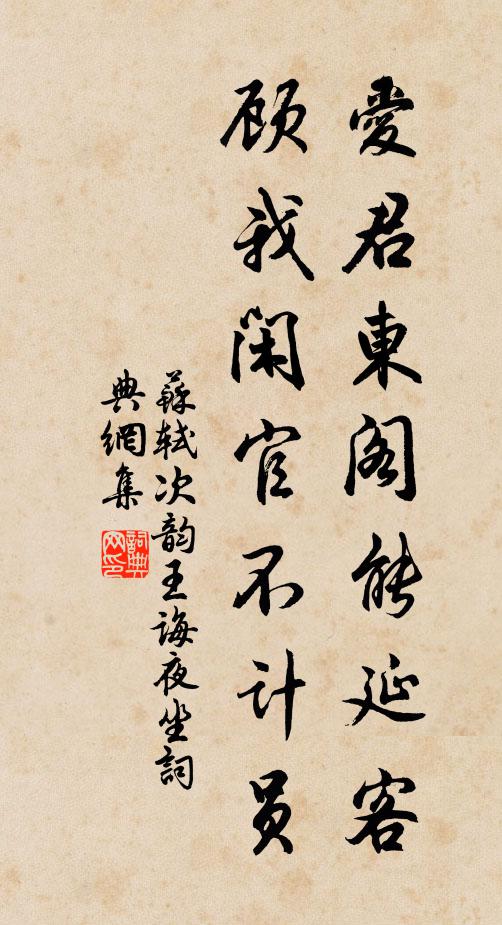 愛君東阁能延客
顾我閑官不计员
蘇軾次韵王誨夜坐詞
典網集
詞典网印